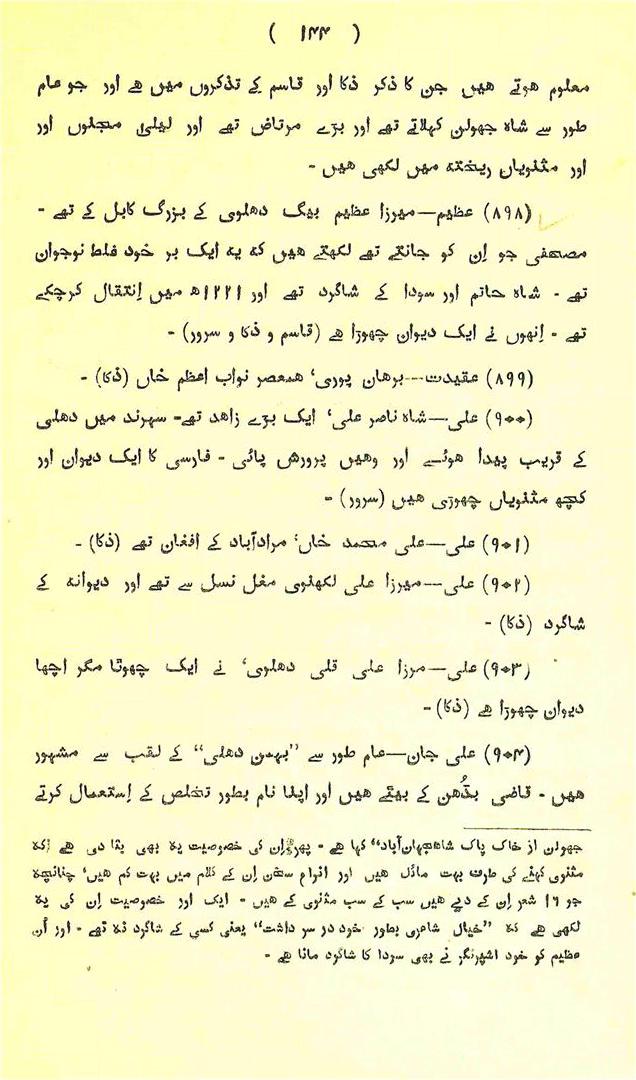 ( ۱۴۴ )
معلوم ہوتے ہیں جن کا ذکر ذکا اور قاسم کے تذکروں میں ہے اور جو عام
طور سے شاہ جھولن کہلاتے تھے اور بڑے مرتاض تھے اور لیلیٰ مجنوں اور
اور مثنویاں ریختہ میں لکھی ہیں -
(۸۹۸) عظیم—میرزا عظیم بیگ دھلوی کے بزرگ کابل کے تھے -
مصحفی جو اِن کو جانتے تھے لکھتے ہیں کہ یہ ایک بر خود غلط نوجوان
تھے - شاہ حاتم اور سودا کے شاگرد تھے اور ۱۲۲۱ھ میں اِنتقال کرچکے
تھے - اِنھوں نے ایک دیوان چھوڑا ہے (قاسم و ذکا و سرور) -
(۸۹۹) عقیدت—برھان پوری، ھمعصر نواب اعظم خاں (ذکا) -
(۹۰۰) علی—شاہ ناصر علی، ایک بڑے زاھد تھے- سہرند میں دھلی
کے قریب پیدا ہوئے اور وھیں پرورش پائی - فارسی کا ایک دیوان اور
کچھ مثنویاں چھوڑی ہیں (سرور) -
(۹۰۱) علی—علی محمد خاں، مرادآباد کے افغان تھے (ذکا) -
(۹۰۲) علی—میرزا علی لکھنوی مغل نسل سے تھے اور دیوانہ کے
شاگرد (ذکا) -
(۹۰۳) علی—مرزا علی قلی دھلوی، نے ایک چھوٹا مگر اچھا
دیوان چھوڑا ہے (ذکا) -
(۹۰۴) علی جان—عام طور سے ”بہمن دھلی“ کے لقب سے مشہور
ہیں - قاضی بدُّھن کے بیٹے ہیں اور اپنا نام بطور تخلص کے اِستعمال کرتے
جھولن از خاک پاک شاھجہان‌آباد“ کہا ہے - پھر اِن کی خصوصیت یہ بھی بتا دی ہے کہ
مثنوی کہنے کی طرف بہت مائل ہیں اور انواع سخن اِن کے کلام میں بہت کم ہیں، چنانچہ
جو ۱۶ شعر اِن کے دیے ہیں سب کے سب مثنوی کے ہیں - ایک اور خصوصیت اِن کی یہ
لکھی ہے کہ ”خیال شاعری بطور خود در سر داشت“ یعنی کسی کے شاگرد نہ تھے - اور اُن
عظیم کو خود اشپرنگر نے بھی سودا کا شاگرد مانا ہے -